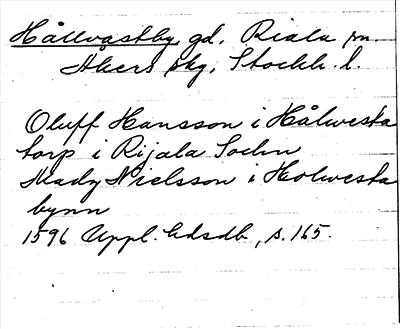 Hållvastby, gd, Riala sn.
Åkers skg, Stockh. l.
Oluff Hansson i Hålwesta
torp i Rijala Sochn
Mady Nielsson i Holwesta
bynn
1596 Uppl. Edsdb, s. 165.